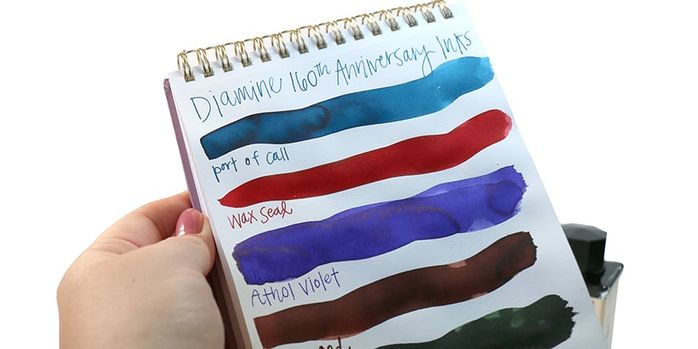 Diamine 160th Anniversary Inks
port of call
wax seal
Athol Violet